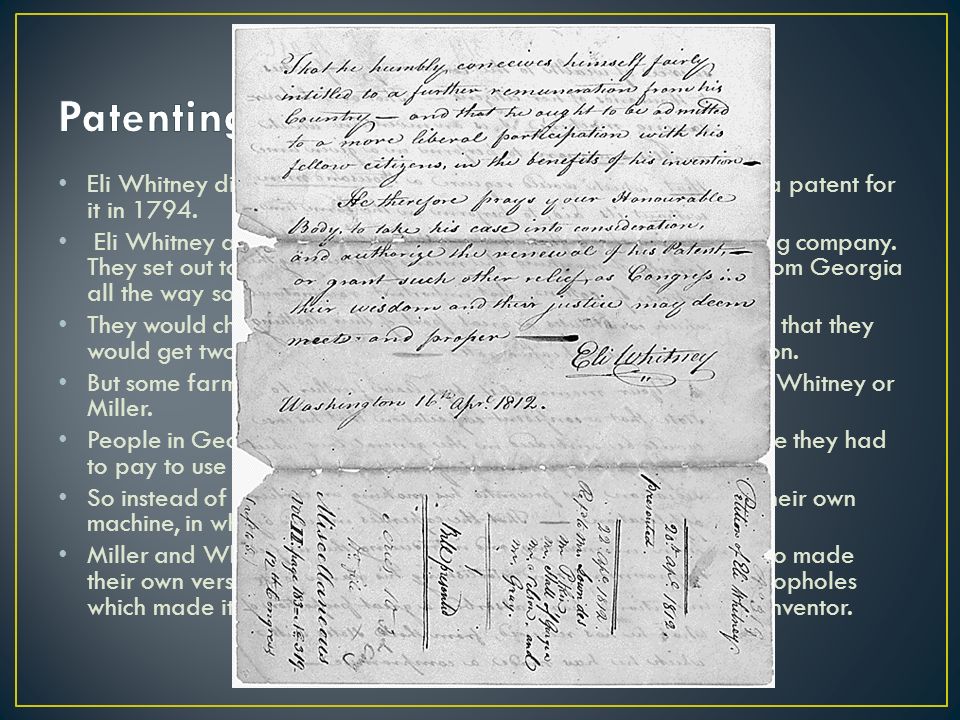 Patenting
• Eli Whitney di
a patent for
it in 1794.
• Eli Whitney a
g company.
They set out to
om Georgia
all the way so
• They would ch
that they
would get two
on.
• But some farm
Whitney or
Miller.
• People in Geo
e they had
to pay to use
• So instead of
heir own
machine, in wh
• Miller and Wh
o made
their own vers
opholes
which made it
nventor.
That he humbly conceives himself fairly
intitled to a further remuneration from his
Country — and that he ought to be admitted
to a more liberal participation with his
fellow citizens, in the benefits of his invention —
He therefore prays your Honourable
Body, to take his case into consideration,
and authorize the renewal of his Patent, —
or grant such other relief, as Congress in
their wisdom and their justice may deem
meet and proper —
Eli Whitney
Washington 16th Apr. 1812.
Petition of Eli Whitney.
28th Apl. 1812.
presented.
22d Apl. 1812
Mr. Lowndes
Mr. Pitkin
Mr. Hall of Georgia
Mr. Nelson, and
Mr. Gray.
Bill presented
Miscellaneous
12th Congress